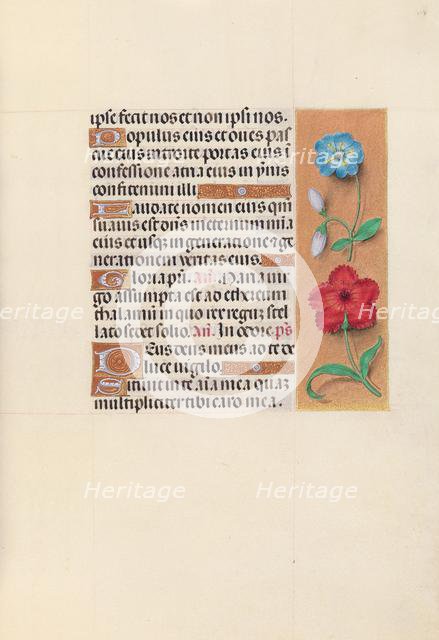 ipse fecit nos et non ipsi nos.
Populus eius et oves pas
cue eius introite portas eius ī
confessione atria eius in ymnis
confitemini illi.
Laudate nomen eius qm̄
suavis est dn̄s in eternum mīa
eius et usq; in generatione &ge
nerationem veritas eius.
Gloria pr̄i. An̄. Maria uir
go assumpta est ad ethereum
thalamum in quo rex regum stel
lato sedet solio. An̄. In odore. ps̄
Deus deus meus ad te de
luce vigilo.
Sitiuit in te aīa mea quam
multipliciter tibi caro mea.
Heritage
Heritage
Heritage
Heritage
Heritage
Heritage